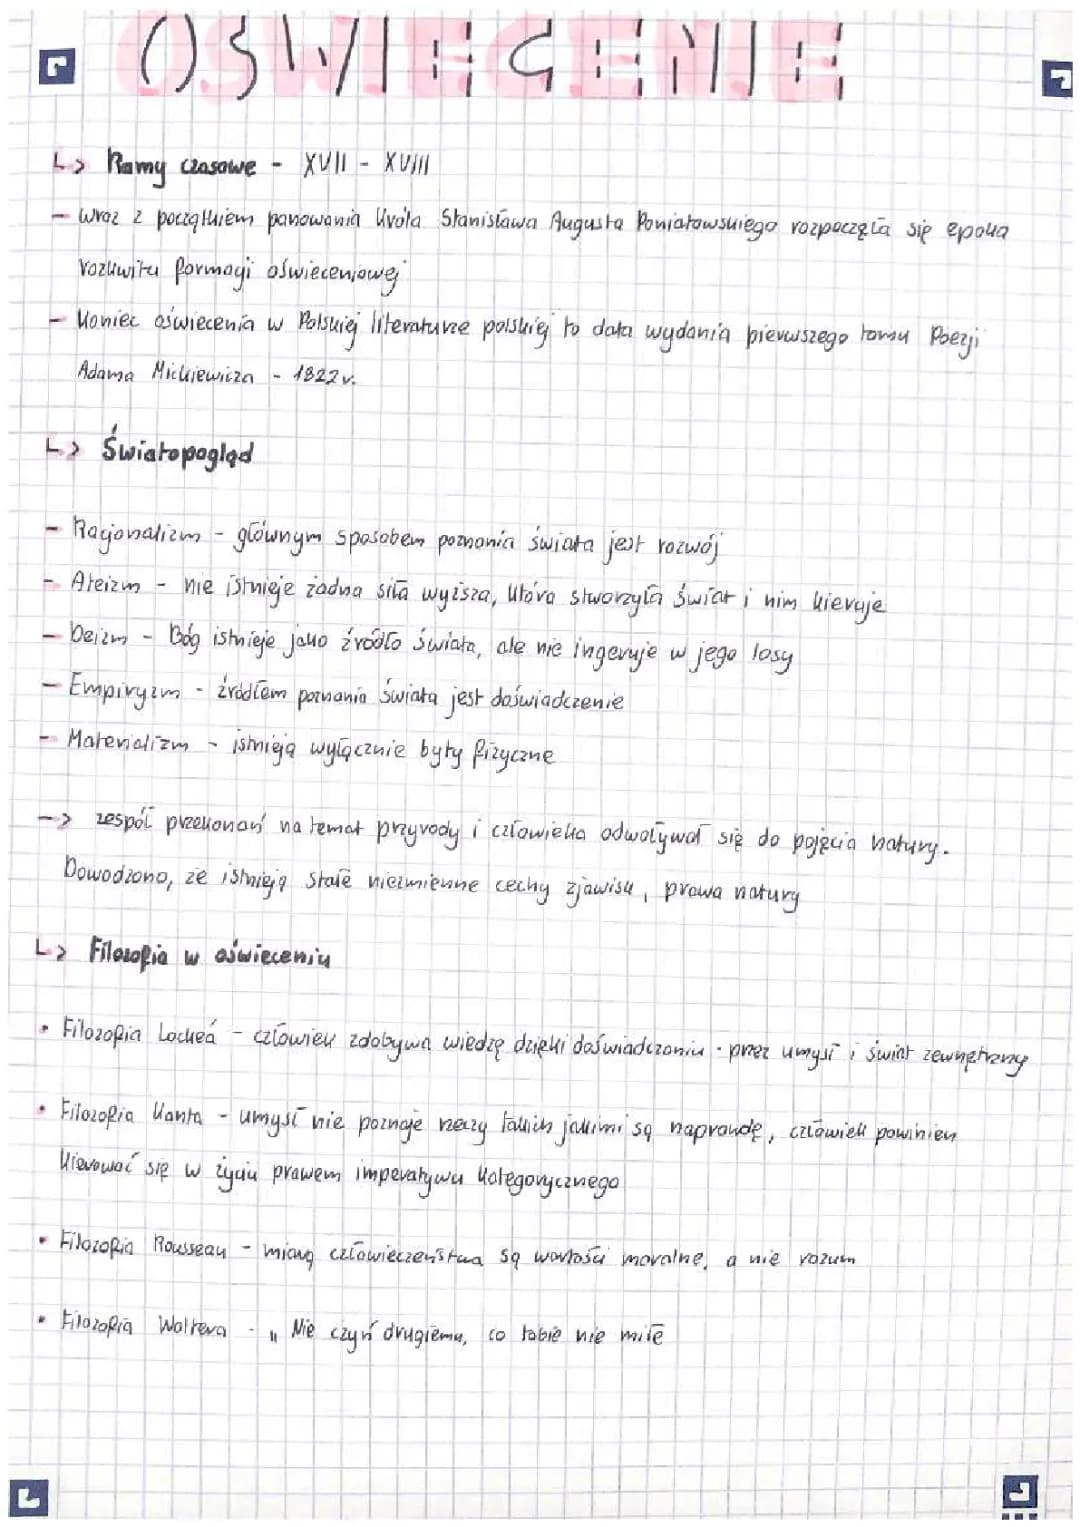 OŚWIECENIE
↳ Ramy czasowe - XVII - XVIII
- Wraz z początkiem panowania króla Stanisława Augusta Poniatowskiego rozpoczęła się epoka
rozkwitu formacji oświeceniowej
- Koniec oświecenia w Polskiej literaturze polskiej to data wydania pierwszego tomu Poezji
Adama Mickiewicza - 1822r.
↳ Światopogląd
- Racjonalizm - głównym sposobem poznania świata jest rozwój
- Ateizm - nie istnieje żadna siła wyższa, która stworzyła świat i nim kieruje
- Deizm - Bóg istnieje jako źródło świata, ale nie ingeruje w jego losy
- Empiryzm - źródłem poznania świata jest doświadczenie
- Materializm - istnieją wyłącznie byty fizyczne
-> zespół przekonań na temat przyrody i człowieka odwoływał się do pojęcia natury.
Dowodzono, że istnieją stałe niezmienne cechy zjawisk, prawa natury
↳ Filozofia w oświeceniu
• Filozofia Locke'a - człowiek zdobywa wiedzę dzięki doświadczeniu - przez umysł i świat zewnętrzny
• Filozofia Kanta - umysł nie poznaje rzeczy takich jakimi są naprawdę, człowiek powinien
kierować się w życiu prawem imperatywu kategorycznego
• Filozofia Rousseau - miarą człowieczeństwa są wartości moralne, a nie rozum
• Filozofia Woltera - „ Nie czyń drugiemu, co tobie nie miłe